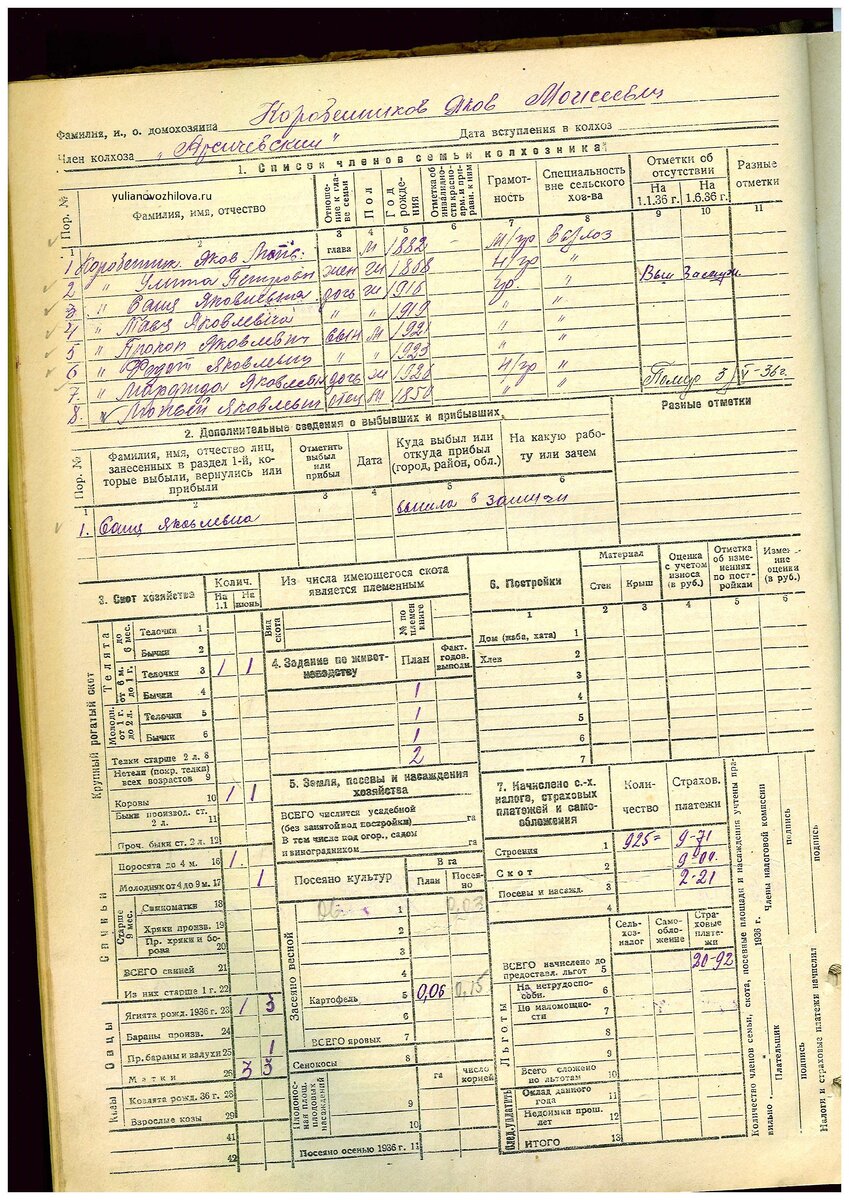 Фамилия, и., о. домохозяина Коробейников Яков Моисеевич
Член колхоза „Арсичевский" Дата вступления в колхоз
1. Список членов семьи колхозника
yulianovozhilova.ru
Пор. № Фамилия, имя, отчество Отношение к главе семьи Пол Год рождения Отметка об инвалидности красноарм. и приравн. к ним Грамотность Специальность вне сельского хоз-ва Отметки об отсутствии На 1.1.36 г. На 1.6.36 г. Разные отметки
2 3 4 5 6 7 8 9 10 11
1 Яков глава м 1882 н/гр
2 " Улита Петровн жен ж 1888 н/гр "
3 " Саня Яковлевна дочь ж 1916 гр. " Вып Замуж
4 " Тася Яковлевна " " 1919 " "
5 " Прокоп Яковлевич сын м 1921 " "
6 " Федот Яковлевич " " 1923 " "
7. " Яковлевн дочь ж 1926 н/гр "
8. Яковлевич отец м 1850 " " V-36 г.
2. Дополнительные сведения о выбывших и прибывших
Разные отметки
Пор. № Фамилия, имя, отчество лиц, занесенных в раздел 1-й, которые выбыли, вернулись или прибыли Отметить выбыл или прибыл Дата Куда выбыл или откуда прибыл (город, район, обл.) На какую работу или зачем
1 2 3 4 5 6
1. Саня Яковлевна вышла в замужи
3. Скот хозяйства Колич. На 1.1 На июнь
Из числа имеющегося скота является племенным
Вид скота № по племен книге
Крупный рогатый скот
Телята
до 6 мес. Телочки 1
Бычки 2
от 6 м. до 1 г. Телочки 3 1 1
Бычки 4
Молодн. от 1 г. до 2 л. Телочки 5
Бычки 6
Телки старше 2 л. 8
Нетели (покр. телки) всех возрастов 9
Коровы 10 1 1
Быки производ. ст. 2 л. 11
Проч. быки ст. 2 л. 12
Свиньи
Поросята до 4 м. 16 1
Молодняк от 4 до 9 м. 17 1
Старше 9 мес. Свиноматки 18
Хряки произв. 19
Пр. хряки и борова 20
ВСЕГО свиней 21
Из них старше 1 г. 22
Овцы
Ягнята рожд. 1936 г. 23 1 3
Бараны произв. 24
Пр. бараны и валухи 25 1
Матки 26 3 3
Козы
Козлята рожд. 36 г. 28
Взрослые козы 29
41
42
4. Задание по животноводству План Факт. годов. выполн.
1
1
1
2
5. Земля, посевы и насаждения хозяйства
ВСЕГО числится усадебной (без занятой под постройки) га
В том числе под огор., садом и виноградником га
Посеяно культур В га План Посеяно
Засеяно весной
1 0,03
2
3
4
Картофель 5 0,06 0,15
6
ВСЕГО яровых 7
Сенокосы 8
га число корней
Плодоносная площ. плодовых насаждений
9
10
Посеяно осенью 1936 г. 11
6. Постройки Материал Стен Крыш Оценка с учетом износа (в руб.) Отметка об изменениях по постройкам Изменение оценки (в руб.)
1 2 3 4 5 6
Дом (изба, хата) 1
Хлев 2
3
4
5
6
7
7. Начислено с.-х. налога, страховых платежей и самообложения Количество Страхов. платежи
Строения 1 925= 9-71
Скот 2 9-00
Посевы и насажд. 3 2-21
4
Сельхозналог Самообложение Страховые платежи
ВСЕГО начислено до предоставл. льгот 5 20-92
Льготы
На нетрудоспособн. 6
По маломощности 7
8
9
Всего сложено по льготам 10
След. уплатить
Оклад данного года 11
Недоимки прош. лет 12
ИТОГО 13
Количество членов семьи, скота, посевные площади и насаждения учтены правильно 1936 г. Члены налоговой комиссии подпись
Плательщик подпись
подпись
Налоги и страховые платежи начислил подпись